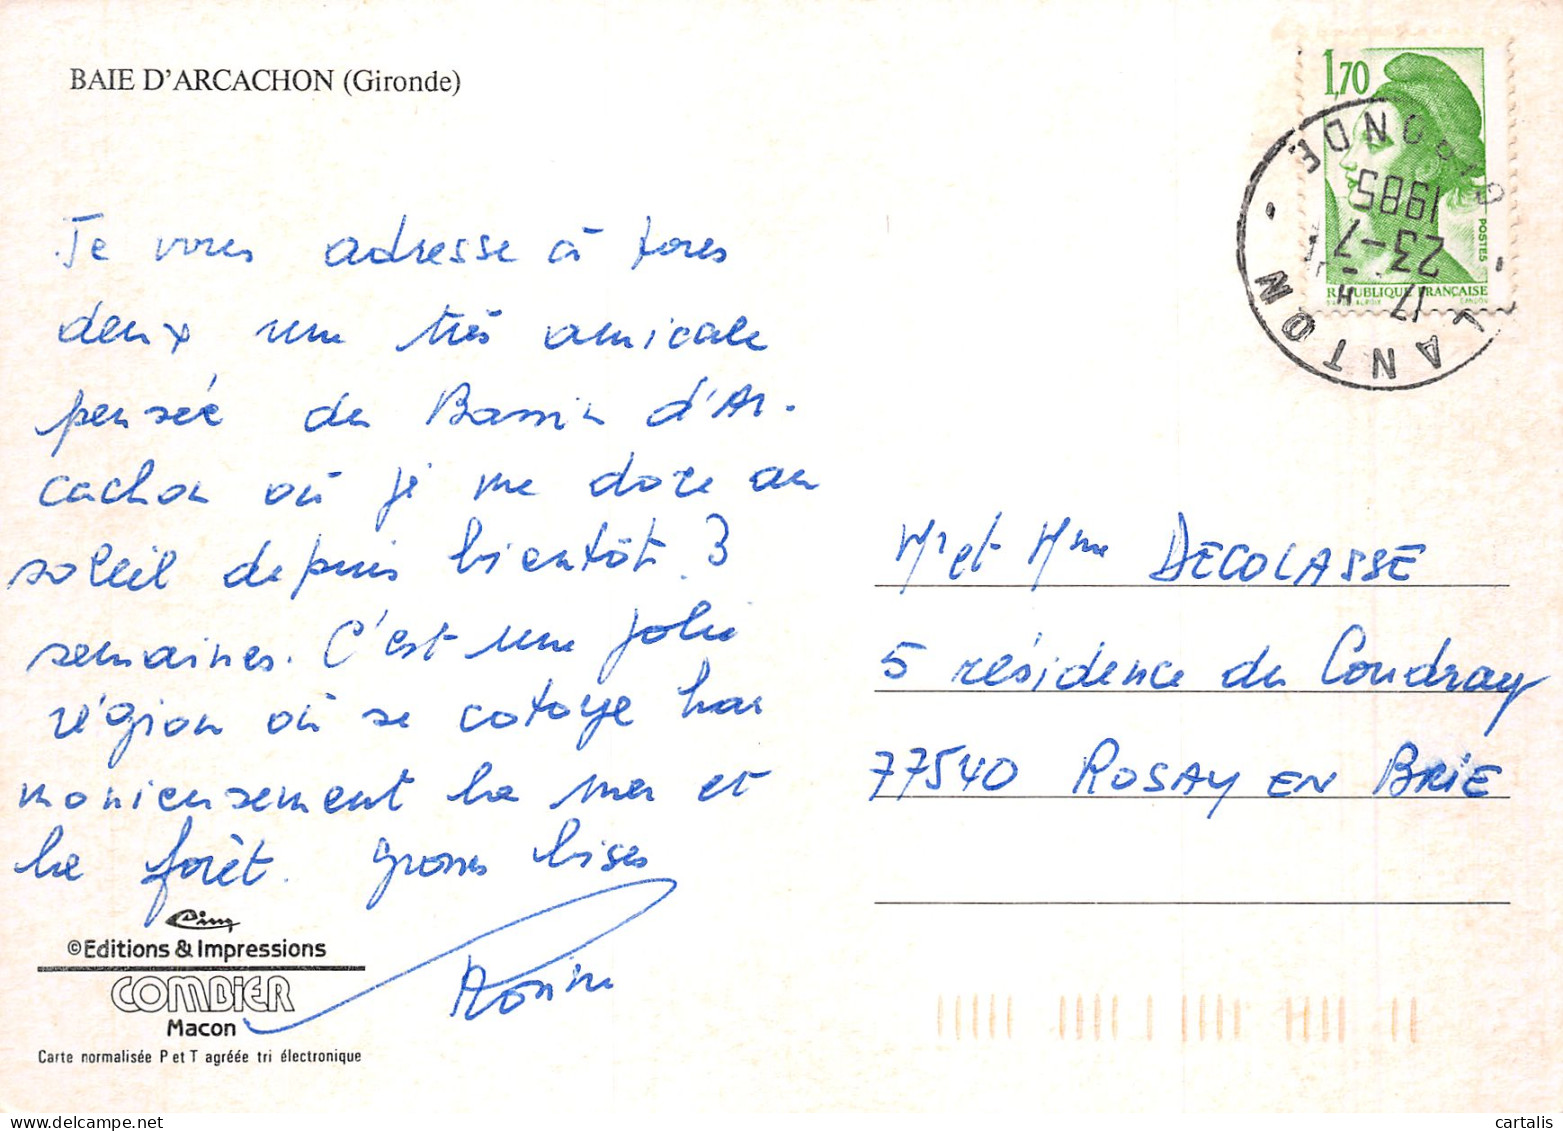 BAIE D'ARCACHON (Gironde)
Je vous adresse à tous
deux une très amicale
pensée du Bassin d'Ar-
cachon où je me dore au
soleil depuis bientôt 3
semaines. C'est une jolie
région où se cotoye har
monieusement la mer et
la forêt. grosses bises
Cim
©Editions & Impressions
COMBIER
Macon
Carte normalisée P et T agréée tri électronique
1,70
POSTES
REPUBLIQUE FRANÇAISE
LANTON
GIRONDE
17 H
23-7
1985
Mr et Mme DECOLASSE
5 résidence du Coudray
77540 ROSAY EN BRIE
cartalis